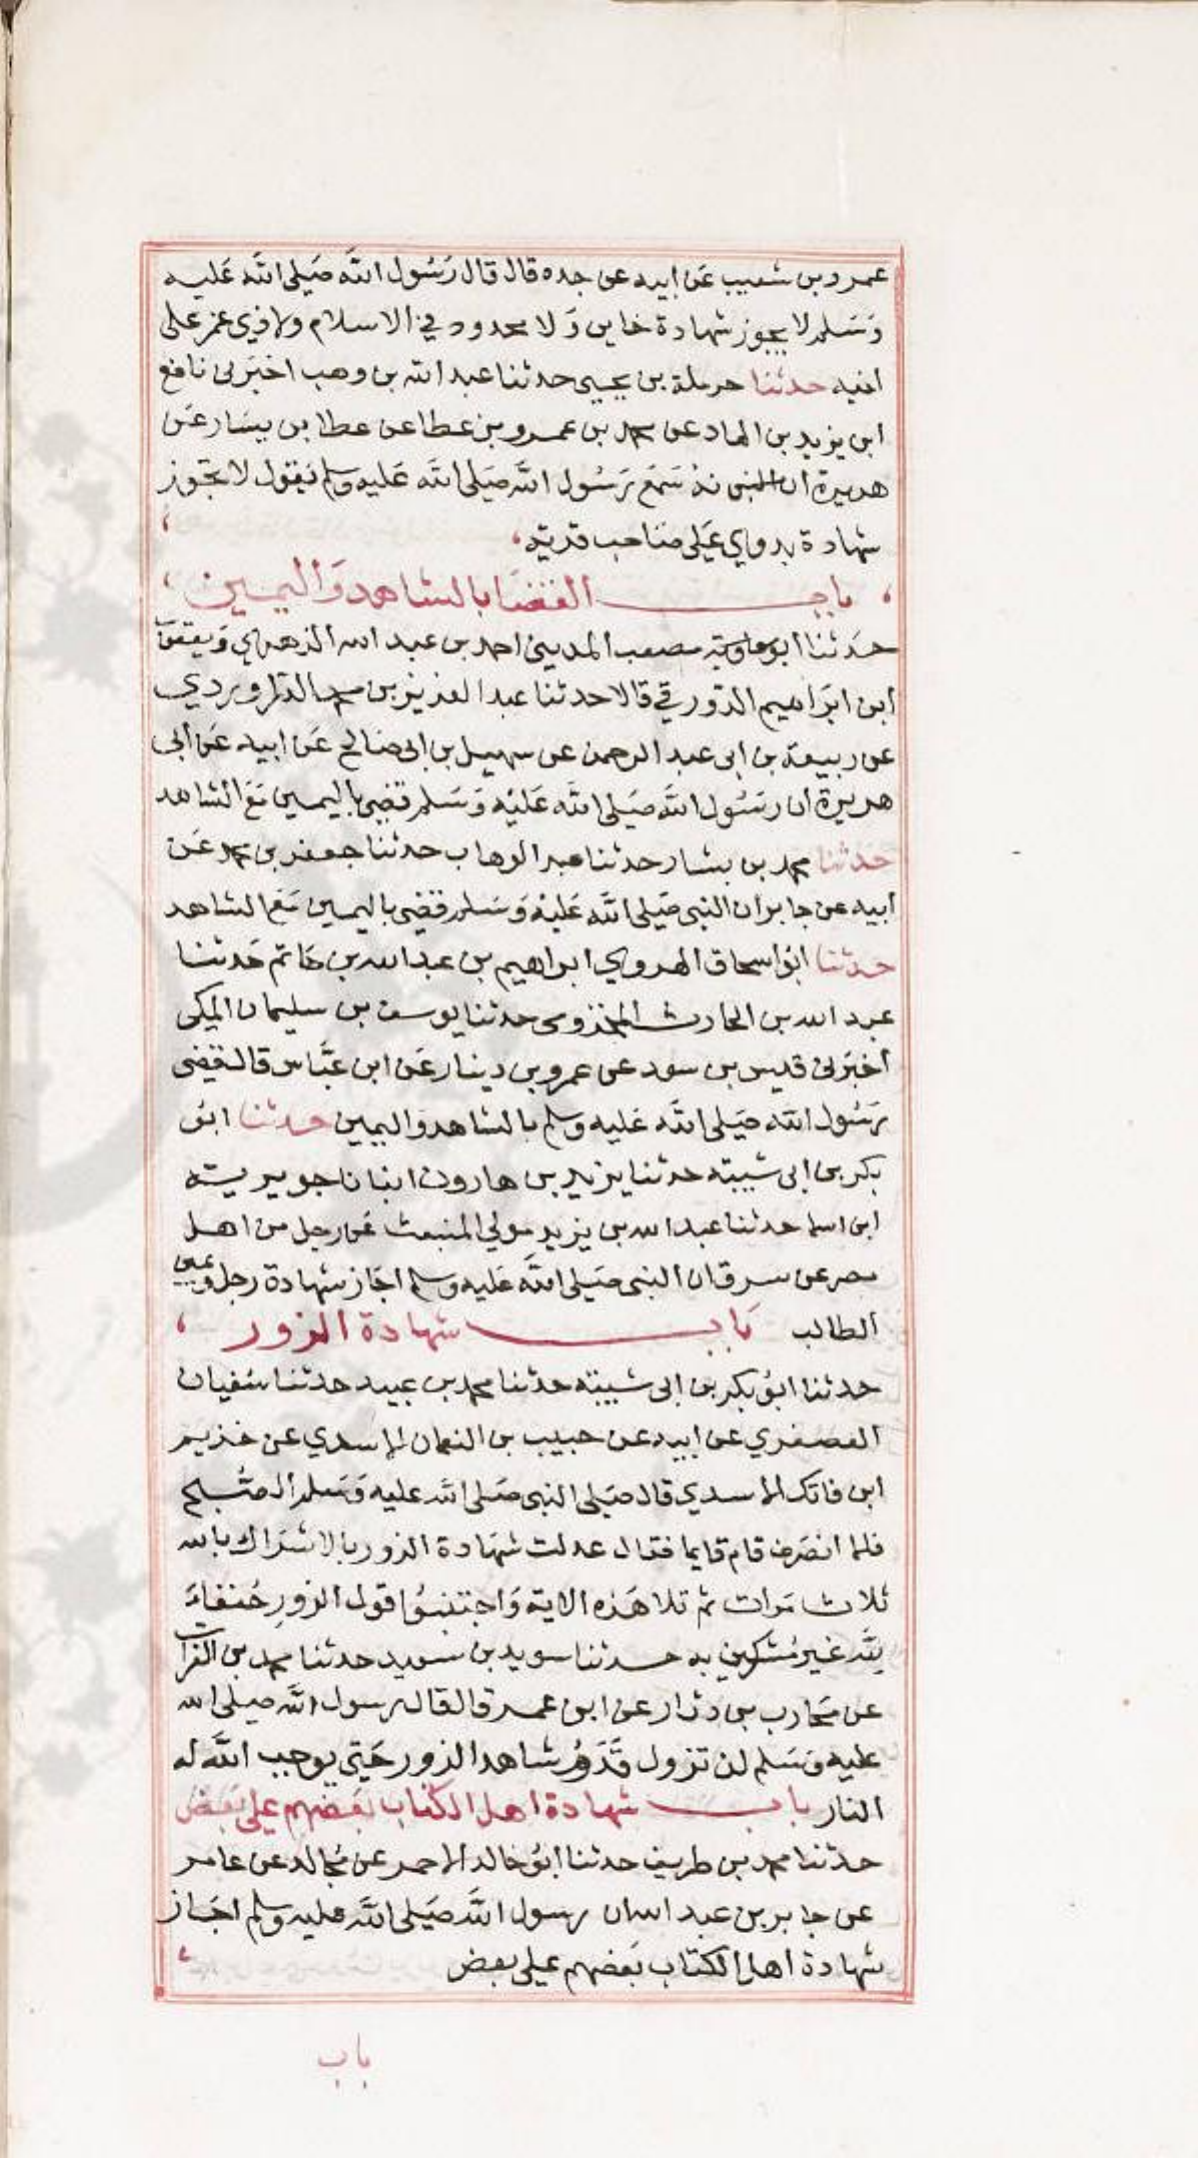 عمرو بن شعيب عن ابيه عن جده قال قال رسول الله صلى الله عليه
وسلم لا يجوز شهادة خاين ولا محدود في الاسلام ولا ذي غمر على
اخيه حدثنا حرملة بن يحيى حدثنا عبد الله بن وهب اخبرنى نافع
ابن يزيد بن الهاد عن محمد بن عمرو بن عطا عن عطا بن يسار عن
هريرة سمع رسول الله صلى الله عليه وسلم يقول لا تجوز
شهادة بدواي على صاحب قرية
باب القضا بالشاهد واليمين
حدثنا ابو مصعب المديني احمد بن عبد الله الزهري ويعقوب
ابن ابراهيم الدورقي قالا حدثنا عبد العزيز بن محمد الدراوردي
عن ربيعة بن ابى عبد الرحمن عن سهيل بن ابى صالح عن ابيه عن ابى
هريرة ان رسول الله صلى الله عليه وسلم قضى باليمين مع الشاهد
حدثنا محمد بن بشار حدثنا عبد الوهاب حدثنا جعفر بن محمد عن
ابيه عن جابر ان النبى صلى الله عليه وسلم قضى باليمين مع الشاهد
حدثنا ابو اسحاق الهروي ابراهيم بن عبد الله بن حاتم حدثنا
عبد الله بن الحارث المخزومى حدثنا يوسف بن سليمان المكى
اخبرنى قيس بن سعد عن عمرو بن دينار عن ابن عباس قال قضى
رسول الله صلى الله عليه وسلم بالشاهد واليمين حدثنا ابو
بكر بن ابى شيبة حدثنا يزيد بن هارون انبانا جويرية
ابن اسما حدثنا عبد الله بن يزيد مولي المنبعث عن رجل من اهل
مصر عن سرق ان النبى صلى الله عليه وسلم اجاز شهادة رجل ويمين
الطالب باب شهادة الزور
حدثنا ابو بكر بن ابى شيبة حدثنا محمد بن عبيد حدثنا سفيان
العصفري عن ابيه عن حبيب بن النعمان الاسدي عن خزيم
ابن فاتك الاسدي قال صلى النبى صلى الله عليه وسلم الصبح
فلما انصرف قام قايما فقال عدلت شهادة الزور بالاشراك بالله
ثلاث مرات ثم تلا هذه الاية واجتنبوا قول الزور حنفاء
لله غير مشركين به حدثنا سويد بن سعيد حدثنا محمد بن الفرات
عن محارب بن دثار عن ابن عمر قال قال رسول الله صلى الله
عليه وسلم لن تزول قدم شاهد الزور حتى يوجب الله له
النار باب شهادة اهل الكتاب بعضهم على بعض
حدثنا محمد بن طريف حدثنا ابو خالد الاحمر عن مجالد عن عامر
عن جابر بن عبد الله ان رسول الله صلى الله عليه وسلم اجاز
شهادة اهل الكتاب بعضهم على بعض
باب